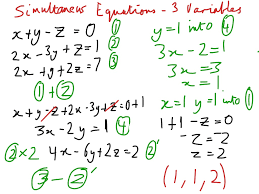 Simultaneous Equations - 3 Variables
x+y-z=0 ①
2x-3y+z=1 ②
2x+y+2z=7 ③
①+②
x+y-z+2x-3y+z=0+1
3x-2y=1 ④
②×2 4x-6y+2z=2 ②'
③-②'
y=1 into ④
3x-2=1
3x=3
x=1
x=1 y=1 into ①
1+1-z=0
-z=-2
z=2
(1,1,2)